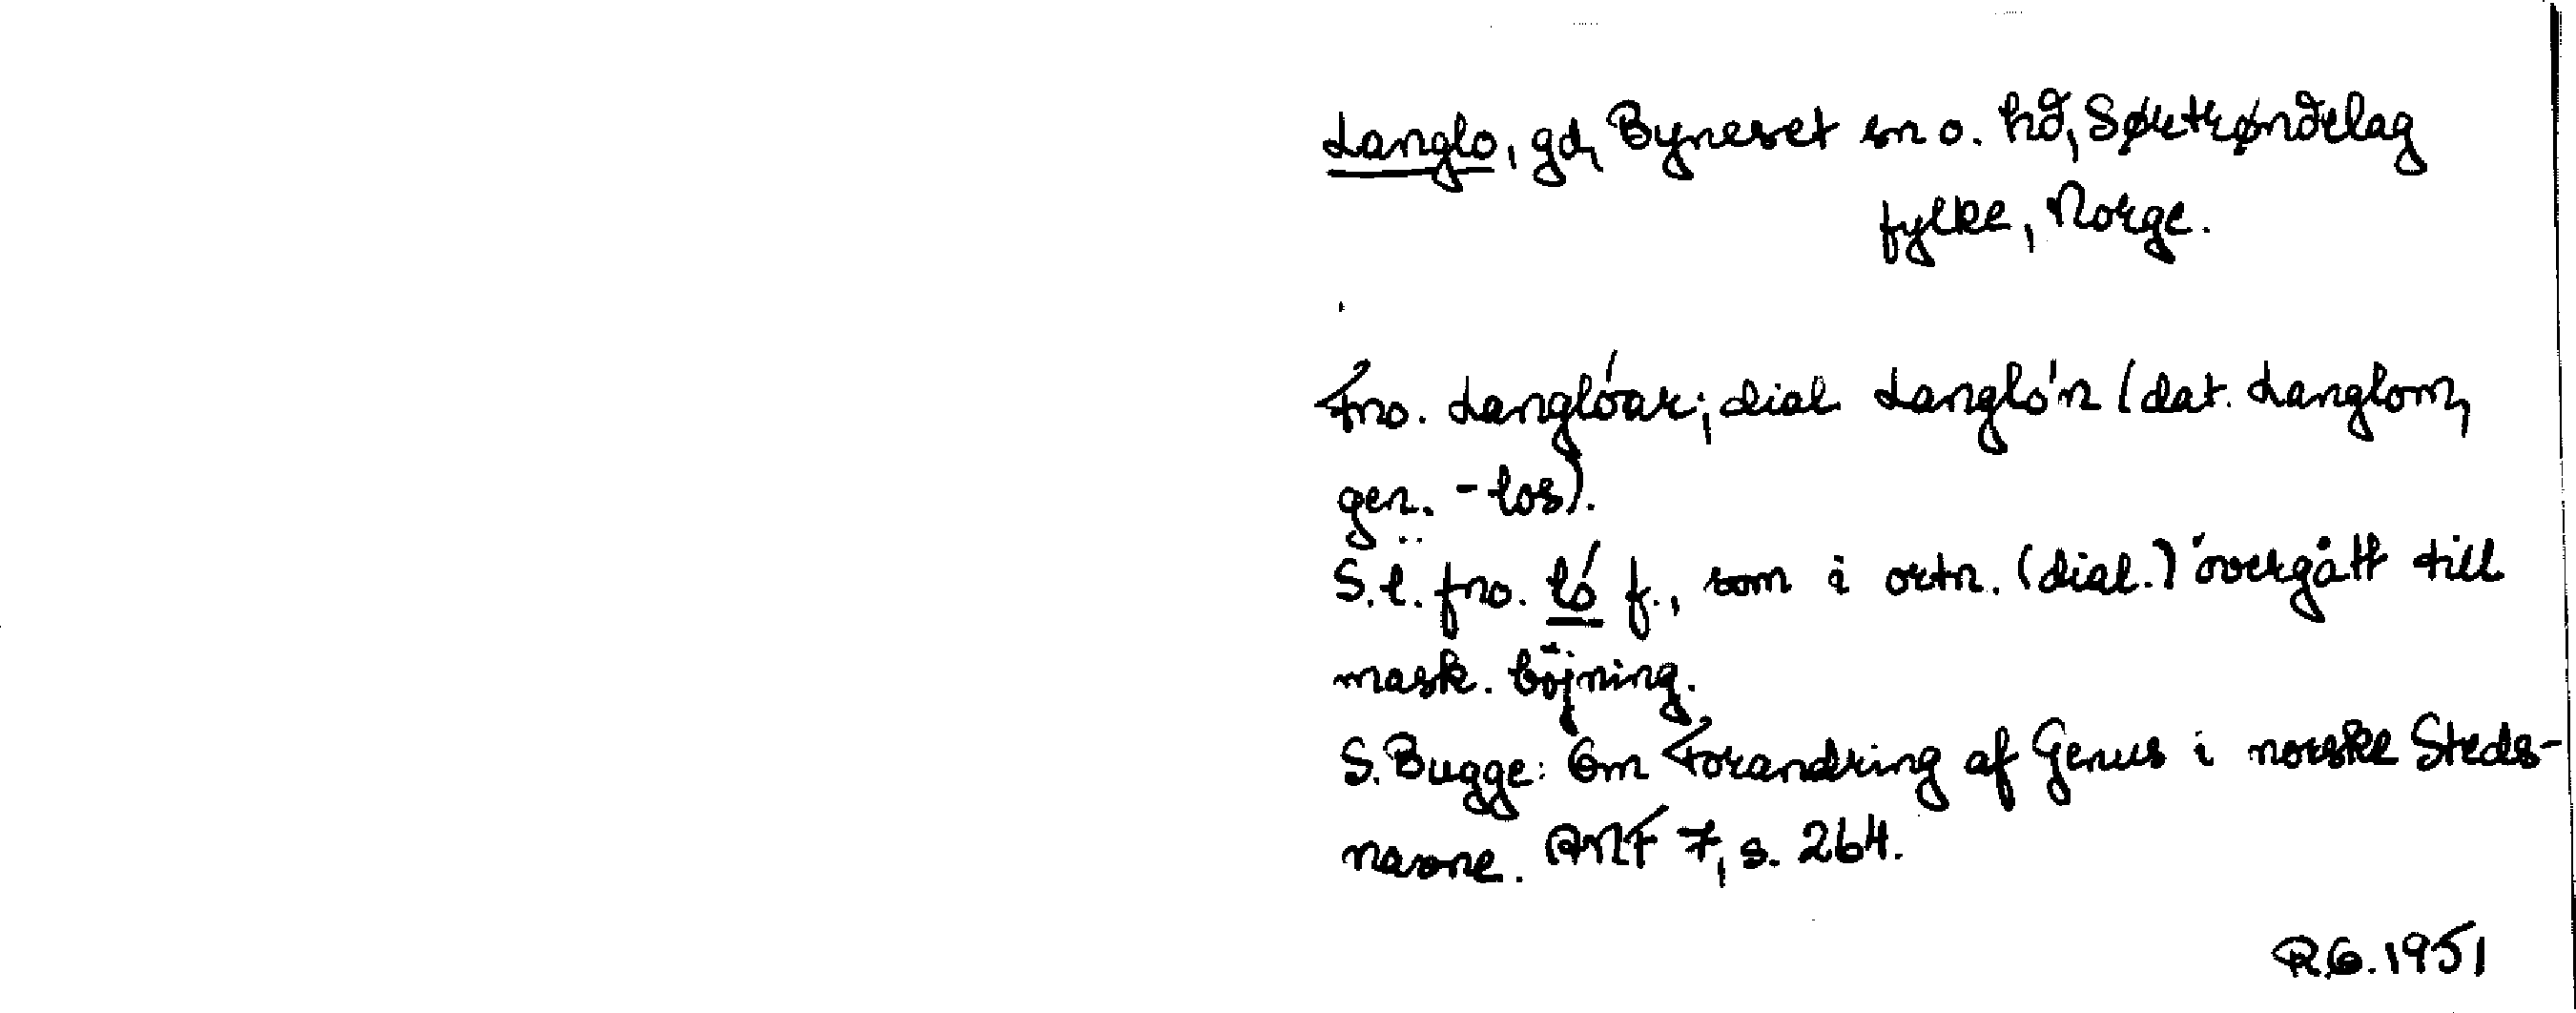 Langlo, gd, Byneset sn o. hd, Sørtrøndelag
fylke, Norge.
Fno. Langlóar; dial. Langlo'n (dat. Langlom,
gen. -los).
S.l. fno. ló f., som i ortn. (dial.) övergått till
mask. böjning.
S. Bugge: Om Forandring af Genus i norske Steds-
navne. ANF 7, s. 264.
R.G. 1951